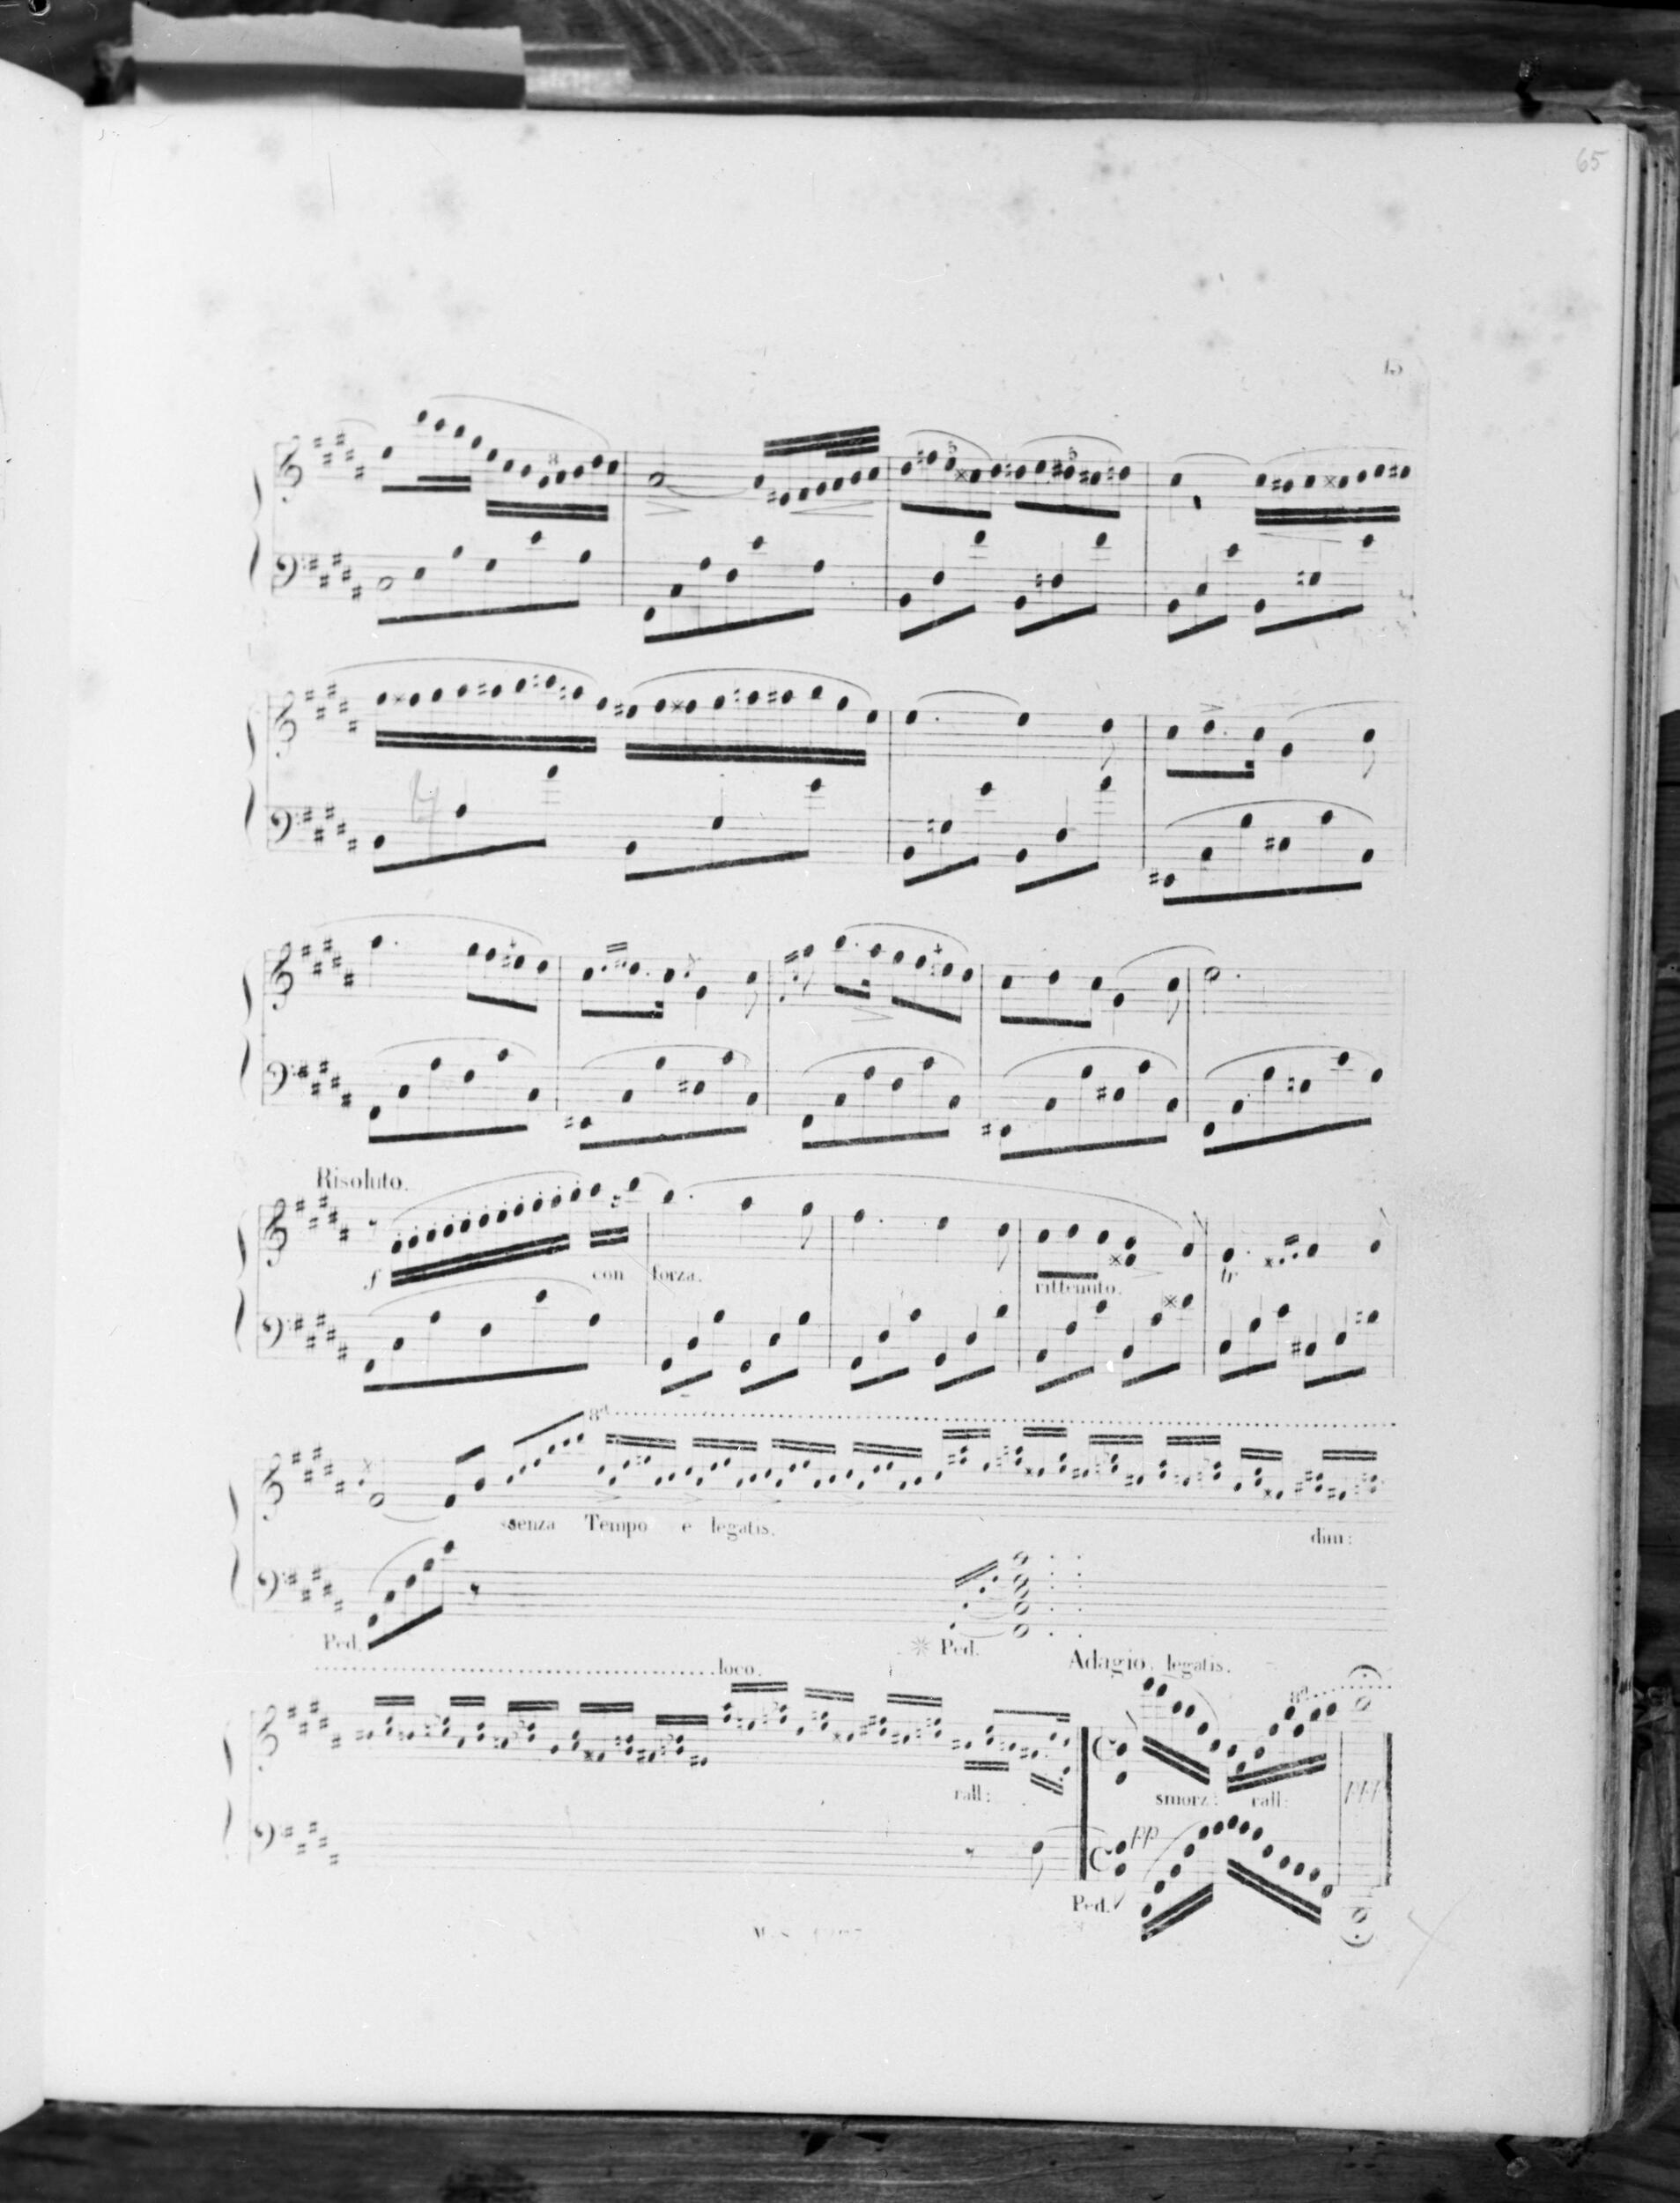 65
15
8
5 5
Risoluto.
f con forza. rittenuto. tr
8ª
senza Tempo e legatis. dim:
Ped. Ped.
loco. Adagio. legatis.
8ª
rall: smorz: rall: ppp
pp
Ped.